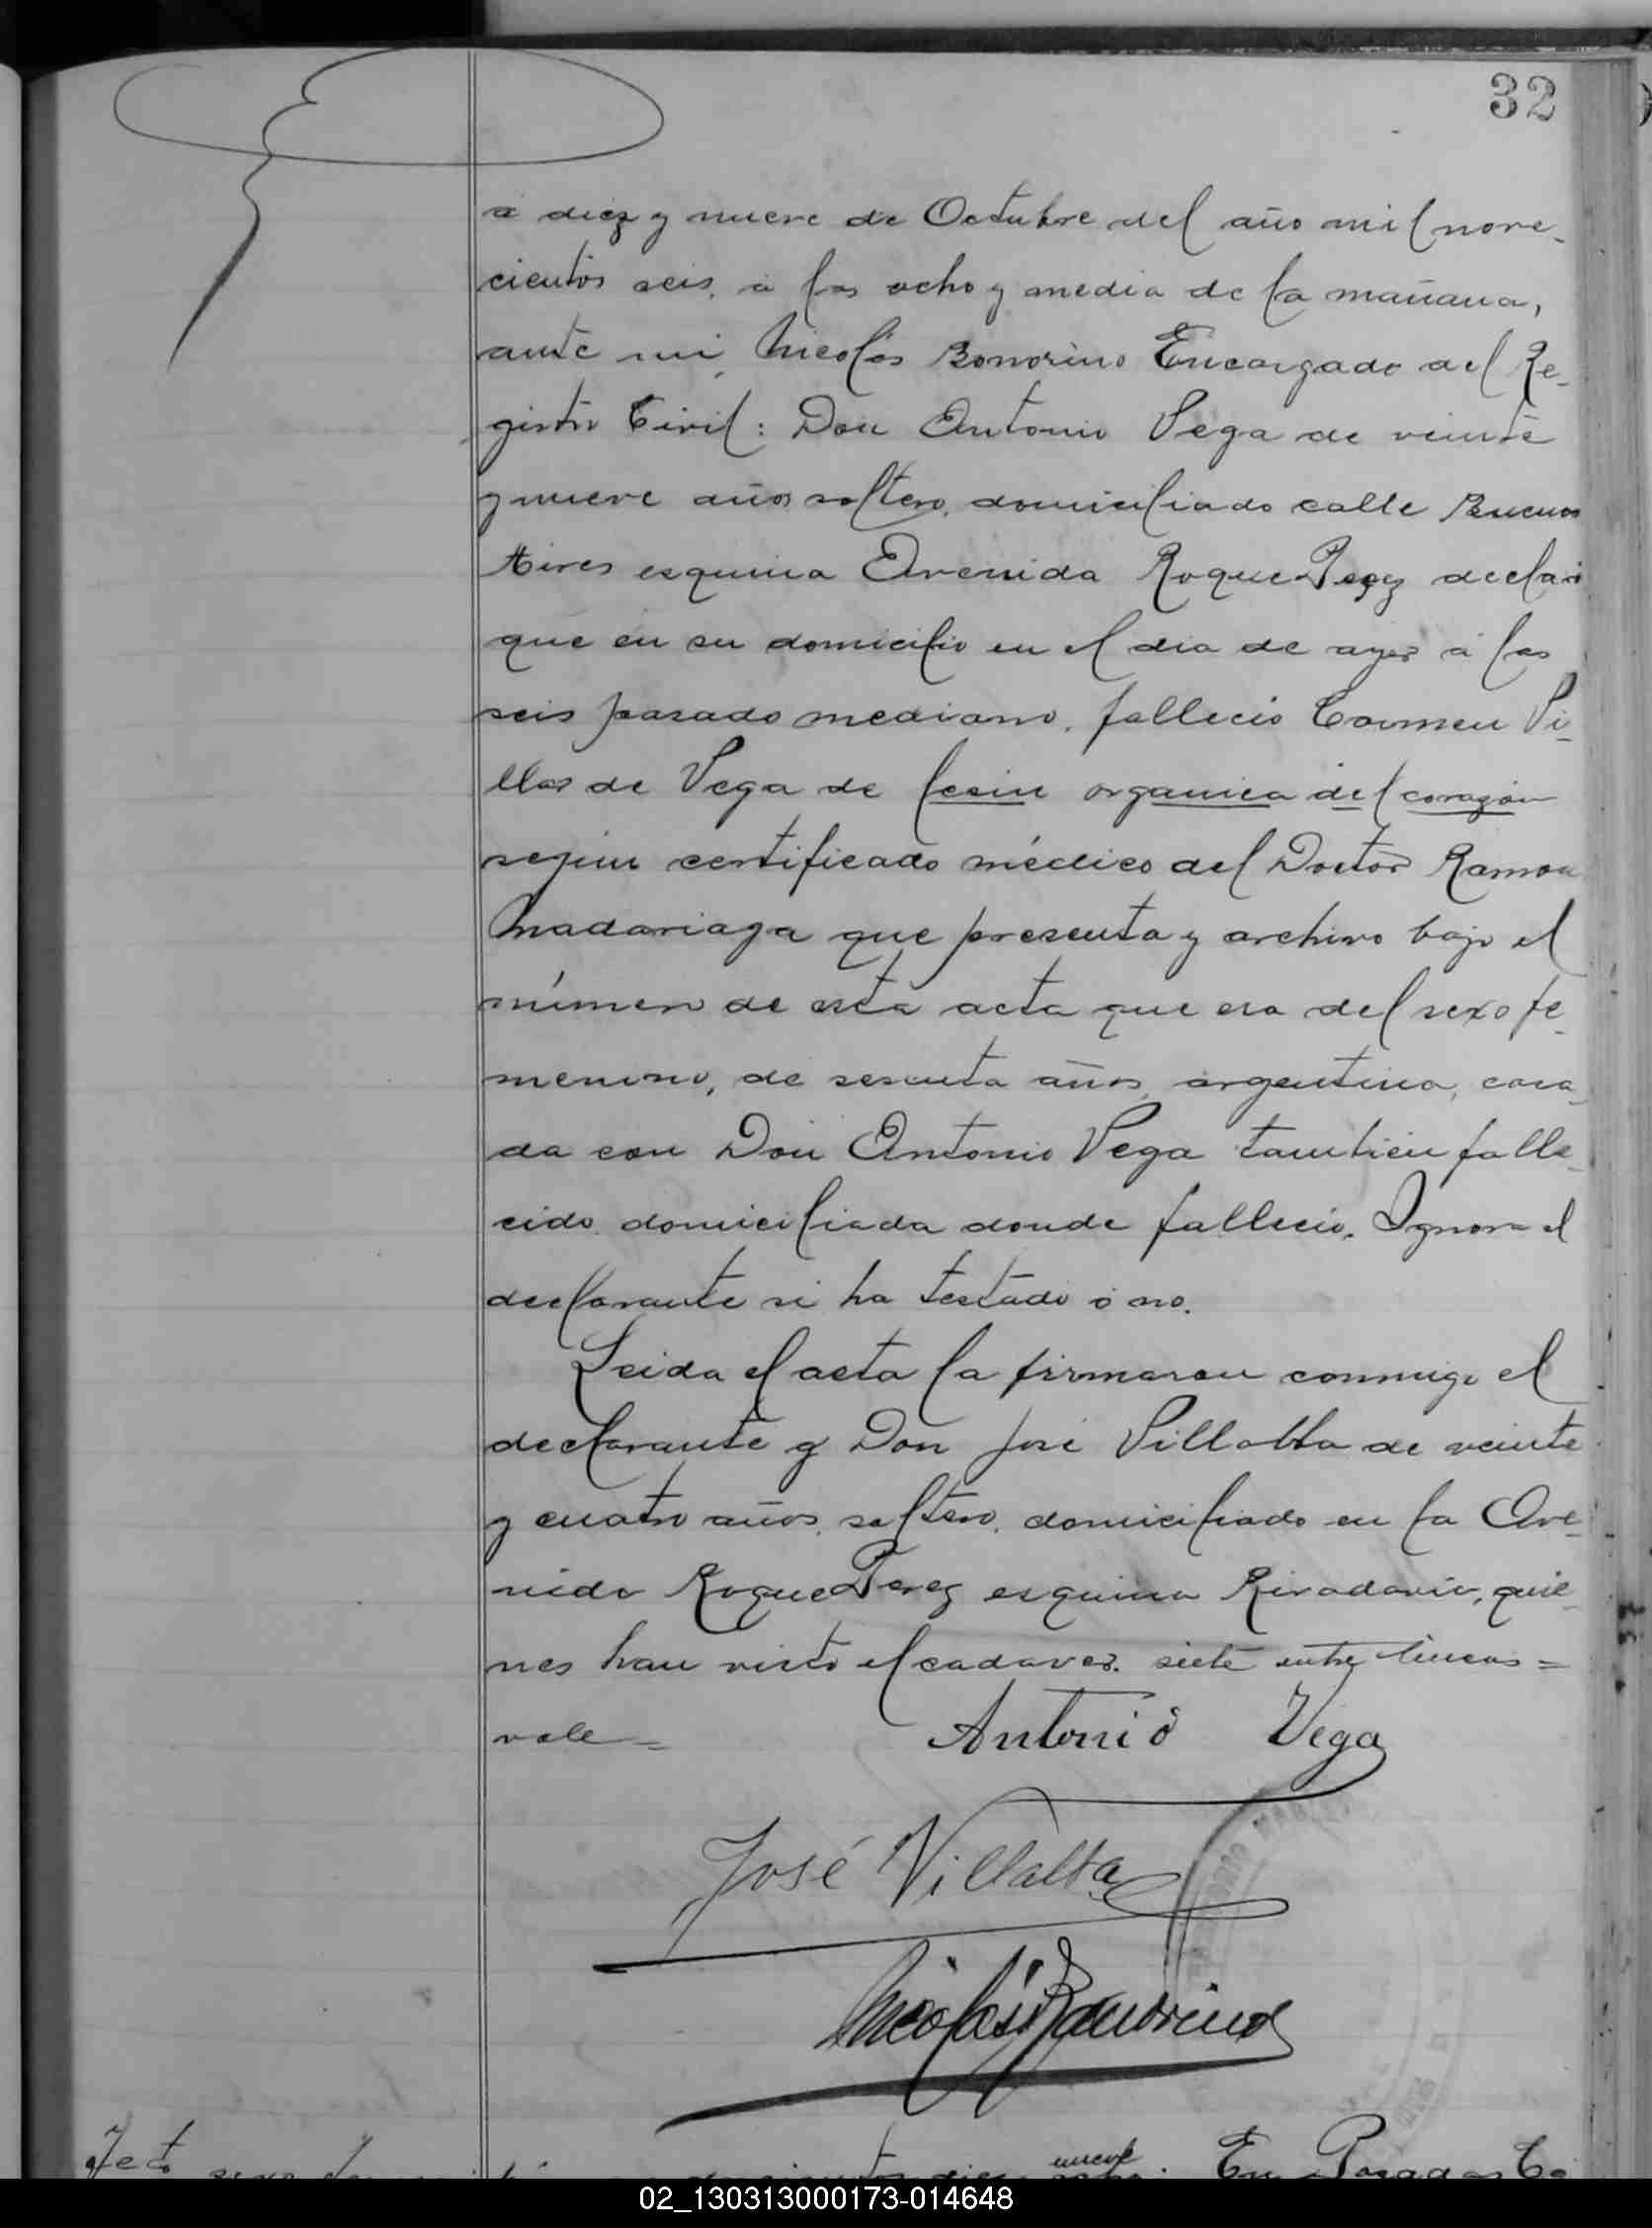 32
a diez y nueve de Octubre del año mil nove-
cientos seis, a las ocho y media de la mañana,
ante mi, Nicolás Bonorino Encargado del Re-
gistro Civil: Don Antonio Vega de veinte
y nueve años soltero, domiciliado calle Buenos
Aires esquina Avenida Roque Perez declaró
que en su domicilio en el dia de ayer a las
seis pasado mediano, fallecio Carmen Vi-
llar de Vega de lesion organica del corazón
segun certificado médico del Doctor Ramon
Madariaga que presenta y archivo bajo el
número de esta acta que era del sexo fe-
menino, de sesenta años, argentina, casa-
da con Don Antonio Vega tambien falle-
cido, domiciliada donde fallecio. Ignora el
declarante si ha testado ó no.
Leida el acta la firmaron conmigo el
declarante y Don José Villalba de veinte
y cuatro años, soltero, domiciliado en la Ave-
nida Roque Perez esquina Rivadavia, quie-
nes han visto el cadaver. siete entre lineas=
vale=
Antonio Vega
José Villalba
Nicolás Bonorino
nueve
En Posadas Ca
02_130313000173-014648